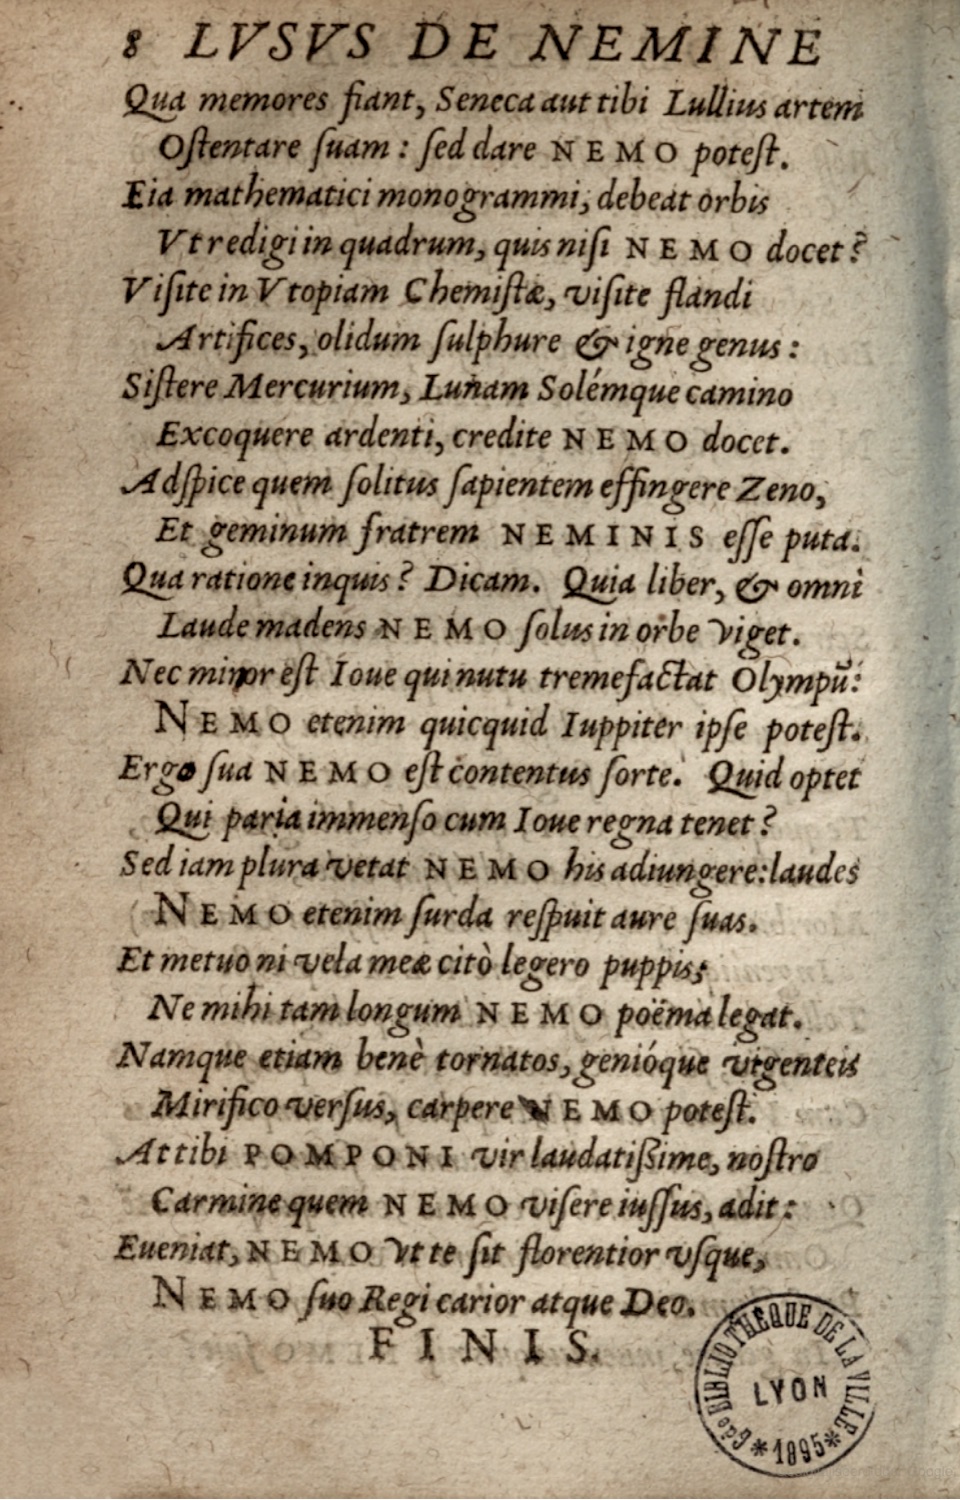 8 LVSVS DE NEMINE
Qua memores fiant, Seneca aut tibi Lullius artem
Oſtentare ſuam : ſed dare NEMO poteſt.
Eia mathematici monogrammi, debeat orbis
Vt redigi in quadrum, quis niſi NEMO docet ?
Viſite in Vtopiam Chemiſtæ, viſite flandi
Artifices, olidum ſulphure & igne genus :
Siſtere Mercurium, Lunam Solémque camino
Excoquere ardenti, credite NEMO docet.
Adſpice quem ſolitus ſapientem effingere Zeno,
Et geminum fratrem NEMINIS eſſe puta.
Qua ratione inquis ? Dicam. Quia liber, & omni
Laude madens NEMO ſolus in orbe viget.
Nec minor eſt Ioue qui nutu tremefactat Olympū:
NEMO etenim quicquid Iuppiter ipſe poteſt.
Ergo ſua NEMO eſt contentus ſorte. Quid optet
Qui paria immenſo cum Ioue regna tenet ?
Sed iam plura vetat NEMO his adiungere: laudes
NEMO etenim ſurda reſpuit aure ſuas.
Et metuo ni vela meæ citò legero puppis;
Ne mihi tam longum NEMO poëma legat.
Namque etiam benè tornatos, genióque vigenteis
Mirifico verſus, carpere NEMO poteſt.
At tibi POMPONI vir laudatiſſime, noſtro
Carmine quem NEMO viſere iuſſus, adit :
Eueniat, NEMO vt te ſit florentior vſque,
NEMO ſuo Regi carior atque Deo.
FINIS.
BIBLIOTHEQUE DE LA VILLE
LYON
*1895*